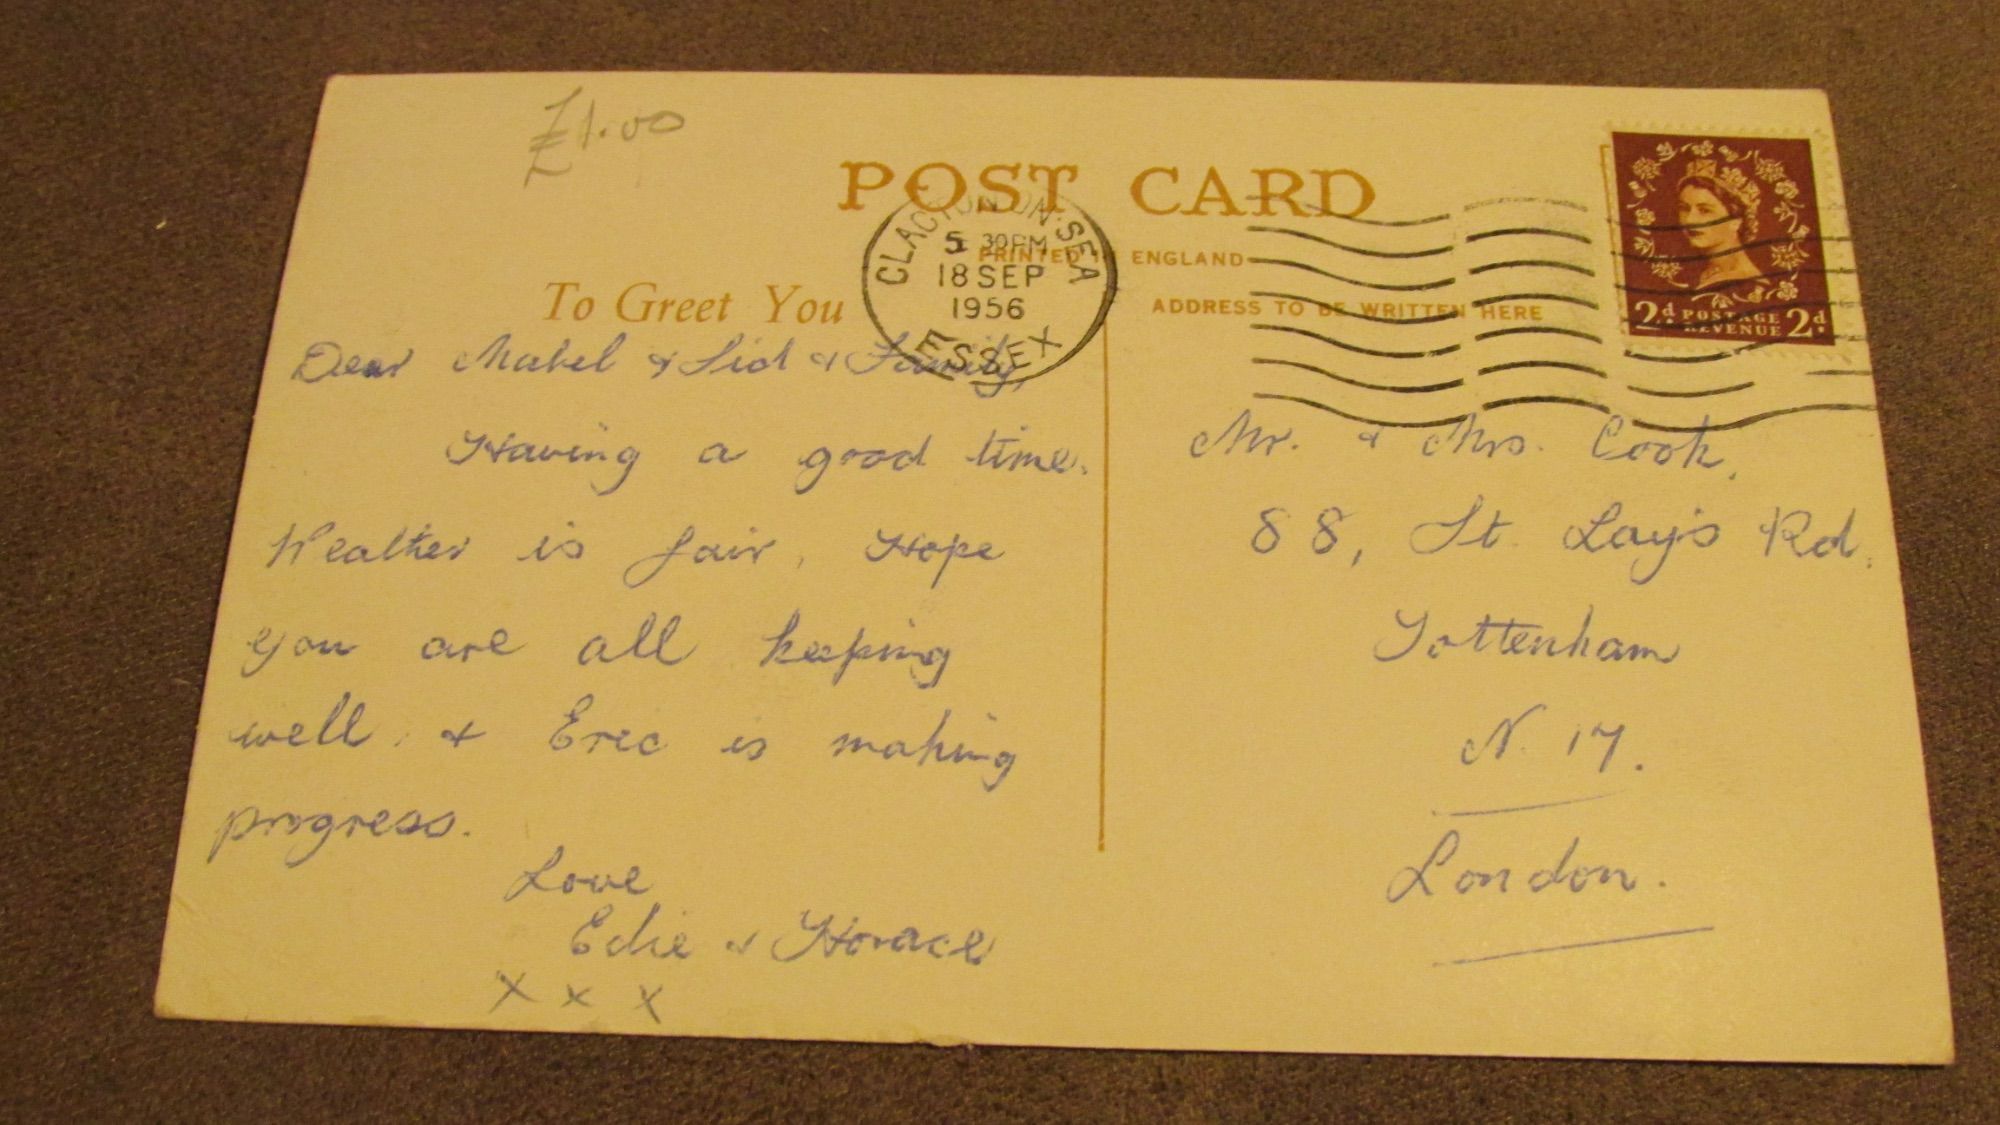 £1.00
POST CARD
CLACTON-ON-SEA
5 30PM
18 SEP
1956
ESSEX
PRINTED IN ENGLAND
To Greet You
ADDRESS TO BE WRITTEN HERE
2d. POSTAGE REVENUE 2d.
Dear Mabel & Sid & Family,
Having a good time.
Weather is fair, Hope
you are all keeping
well, & Eric is making
progress.
Love
Edie & Horace
x x x
Mr. & Mrs. Cook,
88, St. Loy's Rd.
Tottenham
N. 17.
London.